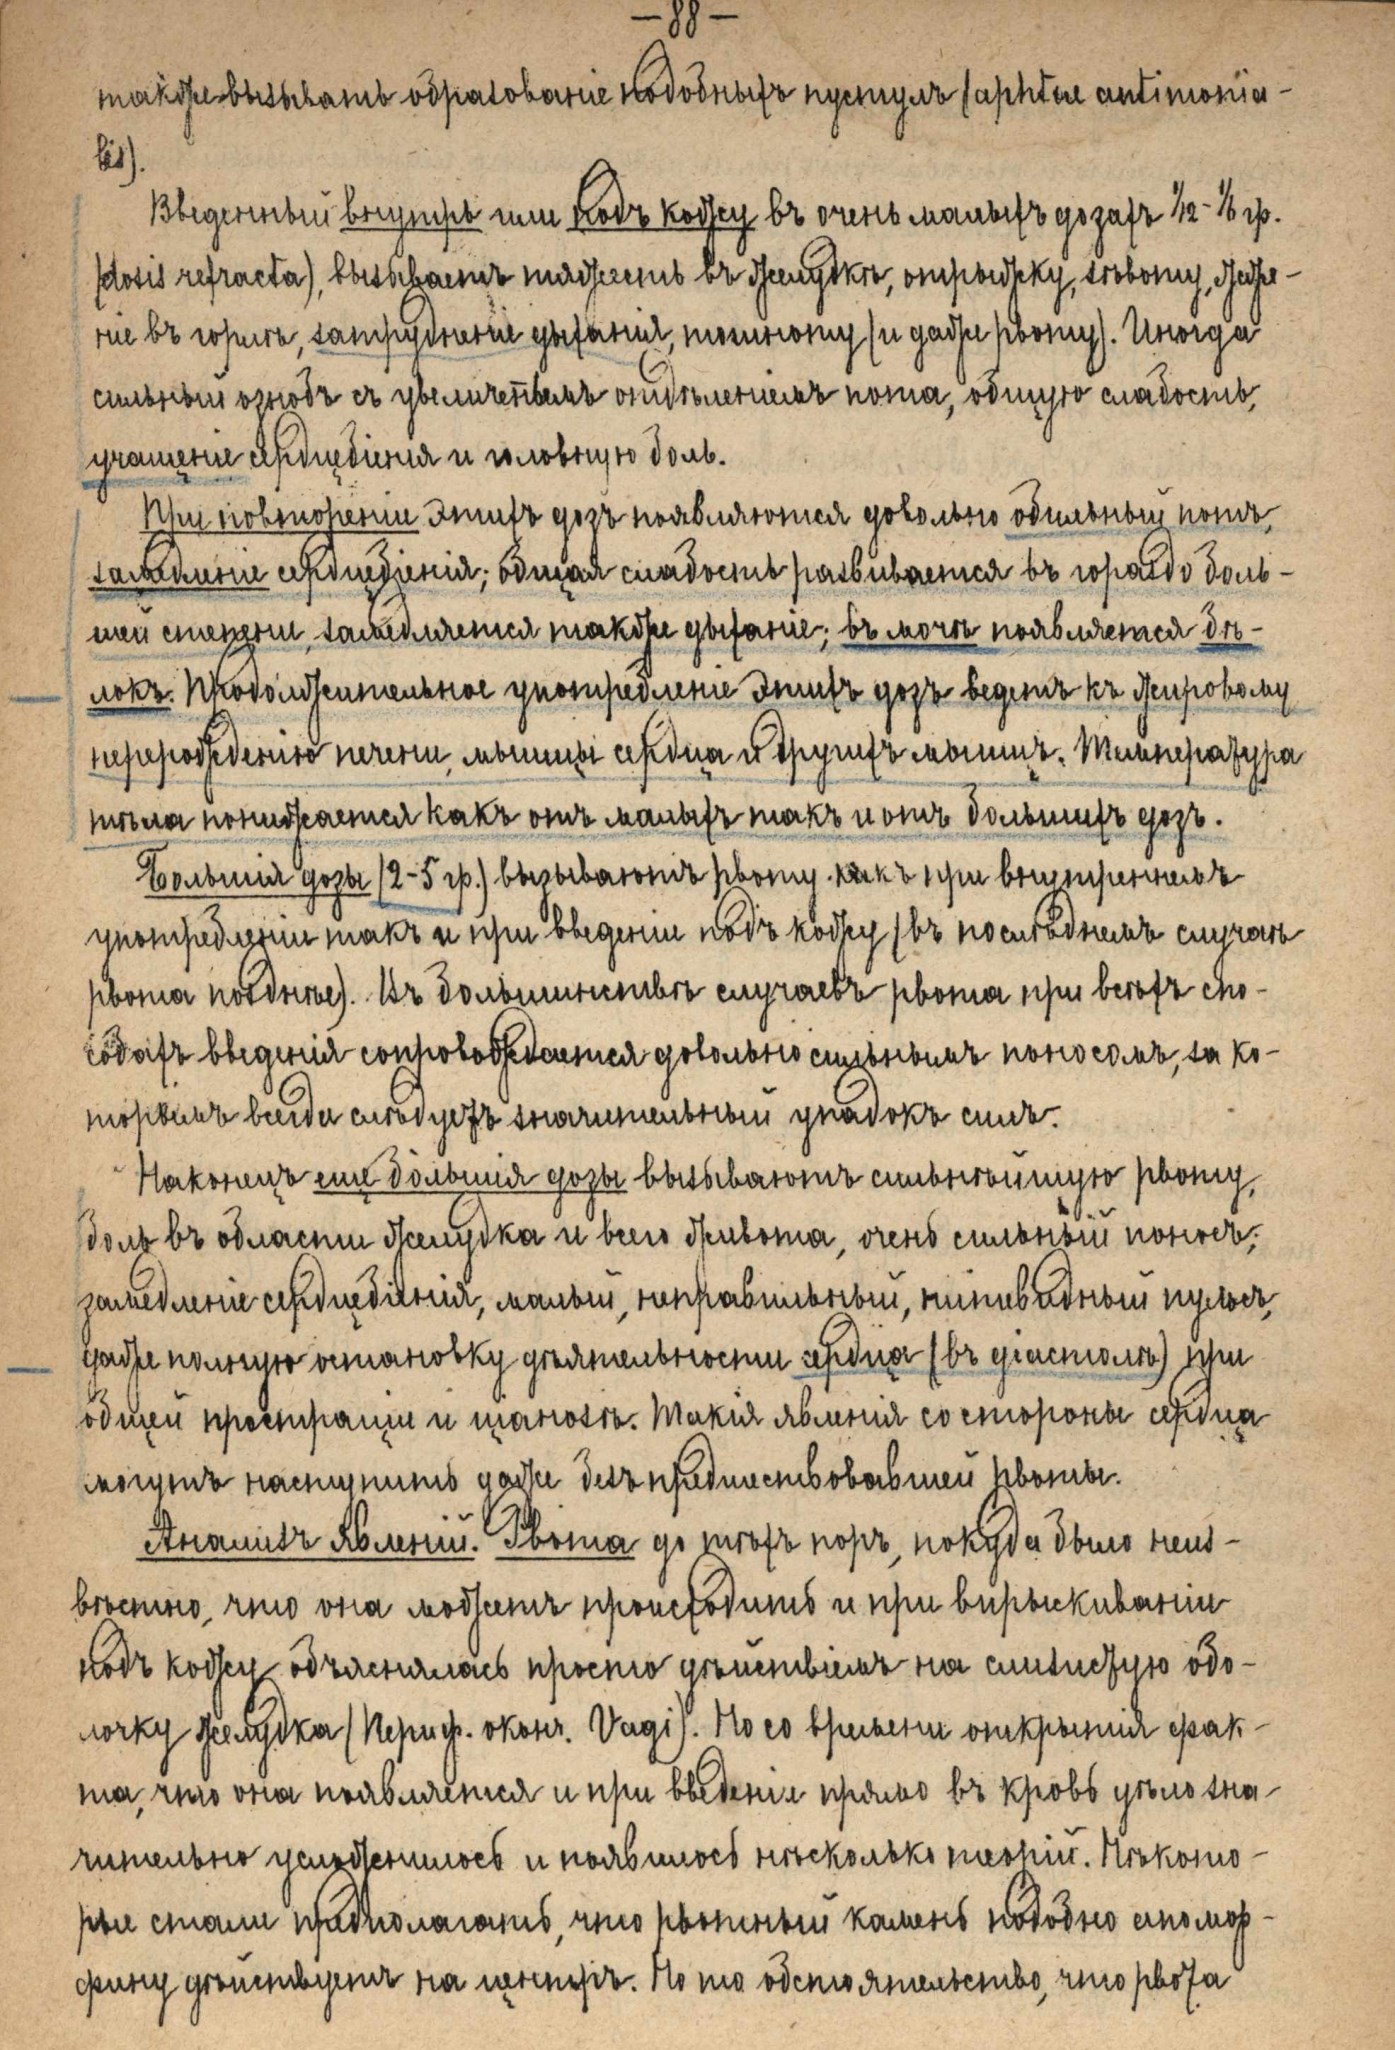 —88—
также вызывать образованіе подобныхъ пустулъ (aphtae antimonia-
lis).
Введенный внутрь или подъ кожу въ очень малыхъ дозахъ 1/12-1/6 гр.
(dosis refracta), вызываетъ тяжесть въ желудкѣ, отрыжку, зѣвоту, жже-
ніе въ горлѣ, затрудненіе дыханія, тошноту (и даже рвоту). Иногда
сильный ознобъ съ увеличеннымъ отдѣленіемъ пота, общую слабость,
учащеніе сердцебіенія и головную боль.
При повтореніи этихъ дозъ появляются довольно обильный потъ,
замедленіе сердцебіенія; общая слабость развивается въ гораздо боль-
шей степени, замедляется также дыханіе; въ мочѣ появляется бѣ-
локъ. Продолжительное употребленіе этихъ дозъ ведетъ къ жировому
перерожденію печени, мышцы сердца и другихъ мышцъ. Температура
тѣла понижается какъ отъ малыхъ такъ и отъ большихъ дозъ.
Большія дозы (2-5 гр.) вызываютъ рвоту какъ при внутреннемъ
употребленіи такъ и при введеніи подъ кожу (въ послѣднемъ случаѣ
рвота позднѣе). Въ большинствѣ случаевъ рвота при всѣхъ спо-
собахъ введенія сопровождается довольно сильнымъ поносомъ, за ко-
торымъ всегда слѣдуетъ значительный упадокъ силъ.
Наконецъ еще бóльшія дозы вызываютъ сильнѣйшую рвоту,
боль въ области желудка и всего живота, очень сильный поносъ;
замедленіе сердцебіенія, малый, неправильный, нитевидный пульсъ,
даже полную остановку дѣятельности сердца (въ діастолѣ) при
общей простраціи и ціанозѣ. Такія явленія со стороны сердца
могутъ наступить даже безъ предшествовавшей рвоты.
Анализъ явленій. Рвота до тѣхъ поръ, покуда было неиз-
вѣстно, что она можетъ происходить и при впрыскиваніи
подъ кожу объяснялась просто дѣйствіемъ на слизистую обо-
лочку желудка (Периф. оконч. Vagi). Но со времени открытія фак-
та, что она появляется и при введеніи прямо въ кровь дѣло зна-
чительно усложнилось и появилось нѣсколько теорій. Нѣкото-
рые стали предполагать, что рвотный камень подобно апомор-
фину дѣйствуетъ на центръ. Но то обстоятельство, что рвота